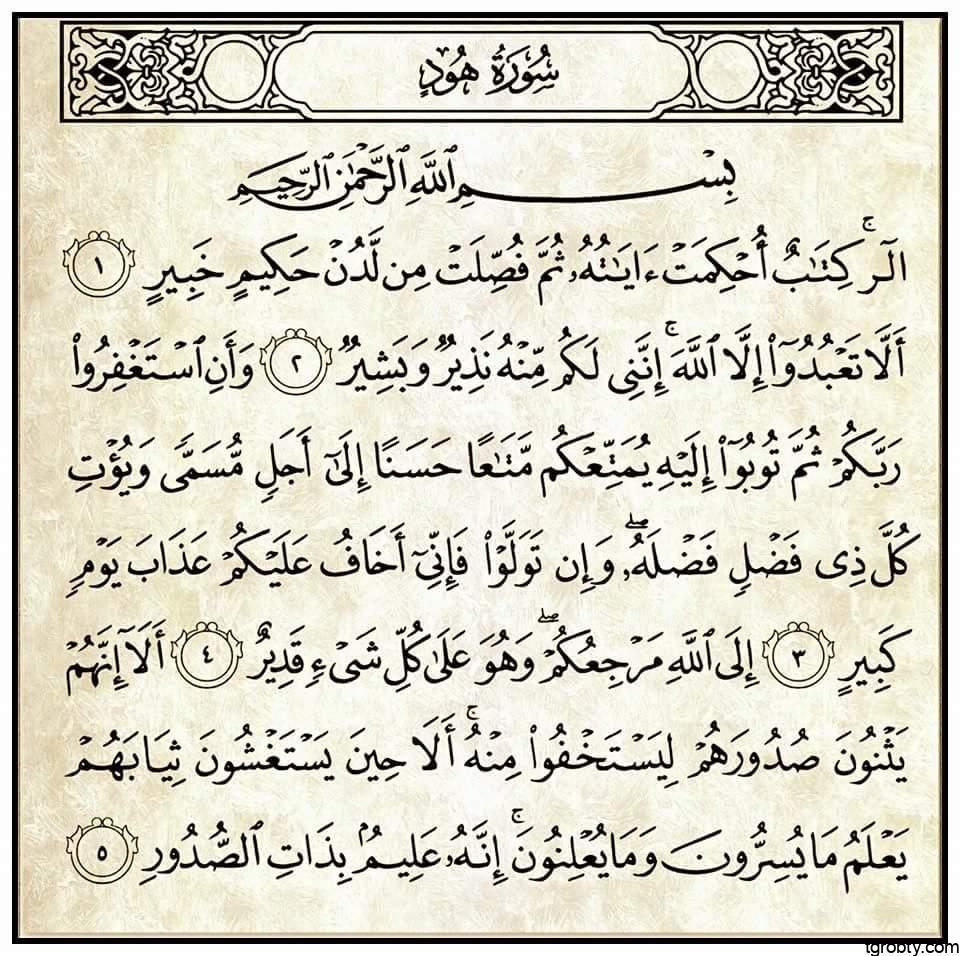 سُورَةُ هُودٍ
بِسْمِ ٱللَّهِ ٱلرَّحْمَٰنِ ٱلرَّحِيمِ
الٓرۚ كِتَٰبٌ أُحْكِمَتْ ءَايَٰتُهُۥ ثُمَّ فُصِّلَتْ مِن لَّدُنْ حَكِيمٍ خَبِيرٍ ١
أَلَّا تَعْبُدُوٓا۟ إِلَّا ٱللَّهَۚ إِنَّنِى لَكُم مِّنْهُ نَذِيرٌ وَبَشِيرٌ ٢ وَأَنِ ٱسْتَغْفِرُوا۟
رَبَّكُمْ ثُمَّ تُوبُوٓا۟ إِلَيْهِ يُمَتِّعْكُم مَّتَٰعًا حَسَنًا إِلَىٰٓ أَجَلٍ مُّسَمًّى وَيُؤْتِ
كُلَّ ذِى فَضْلٍ فَضْلَهُۥۖ وَإِن تَوَلَّوْا۟ فَإِنِّىٓ أَخَافُ عَلَيْكُمْ عَذَابَ يَوْمٍ
كَبِيرٍ ٣ إِلَى ٱللَّهِ مَرْجِعُكُمْۖ وَهُوَ عَلَىٰ كُلِّ شَىْءٍ قَدِيرٌ ٤ أَلَآ إِنَّهُمْ
يَثْنُونَ صُدُورَهُمْ لِيَسْتَخْفُوا۟ مِنْهُۚ أَلَا حِينَ يَسْتَغْشُونَ ثِيَابَهُمْ
يَعْلَمُ مَا يُسِرُّونَ وَمَا يُعْلِنُونَۚ إِنَّهُۥ عَلِيمٌۢ بِذَاتِ ٱلصُّدُورِ ٥
tgrobty.com